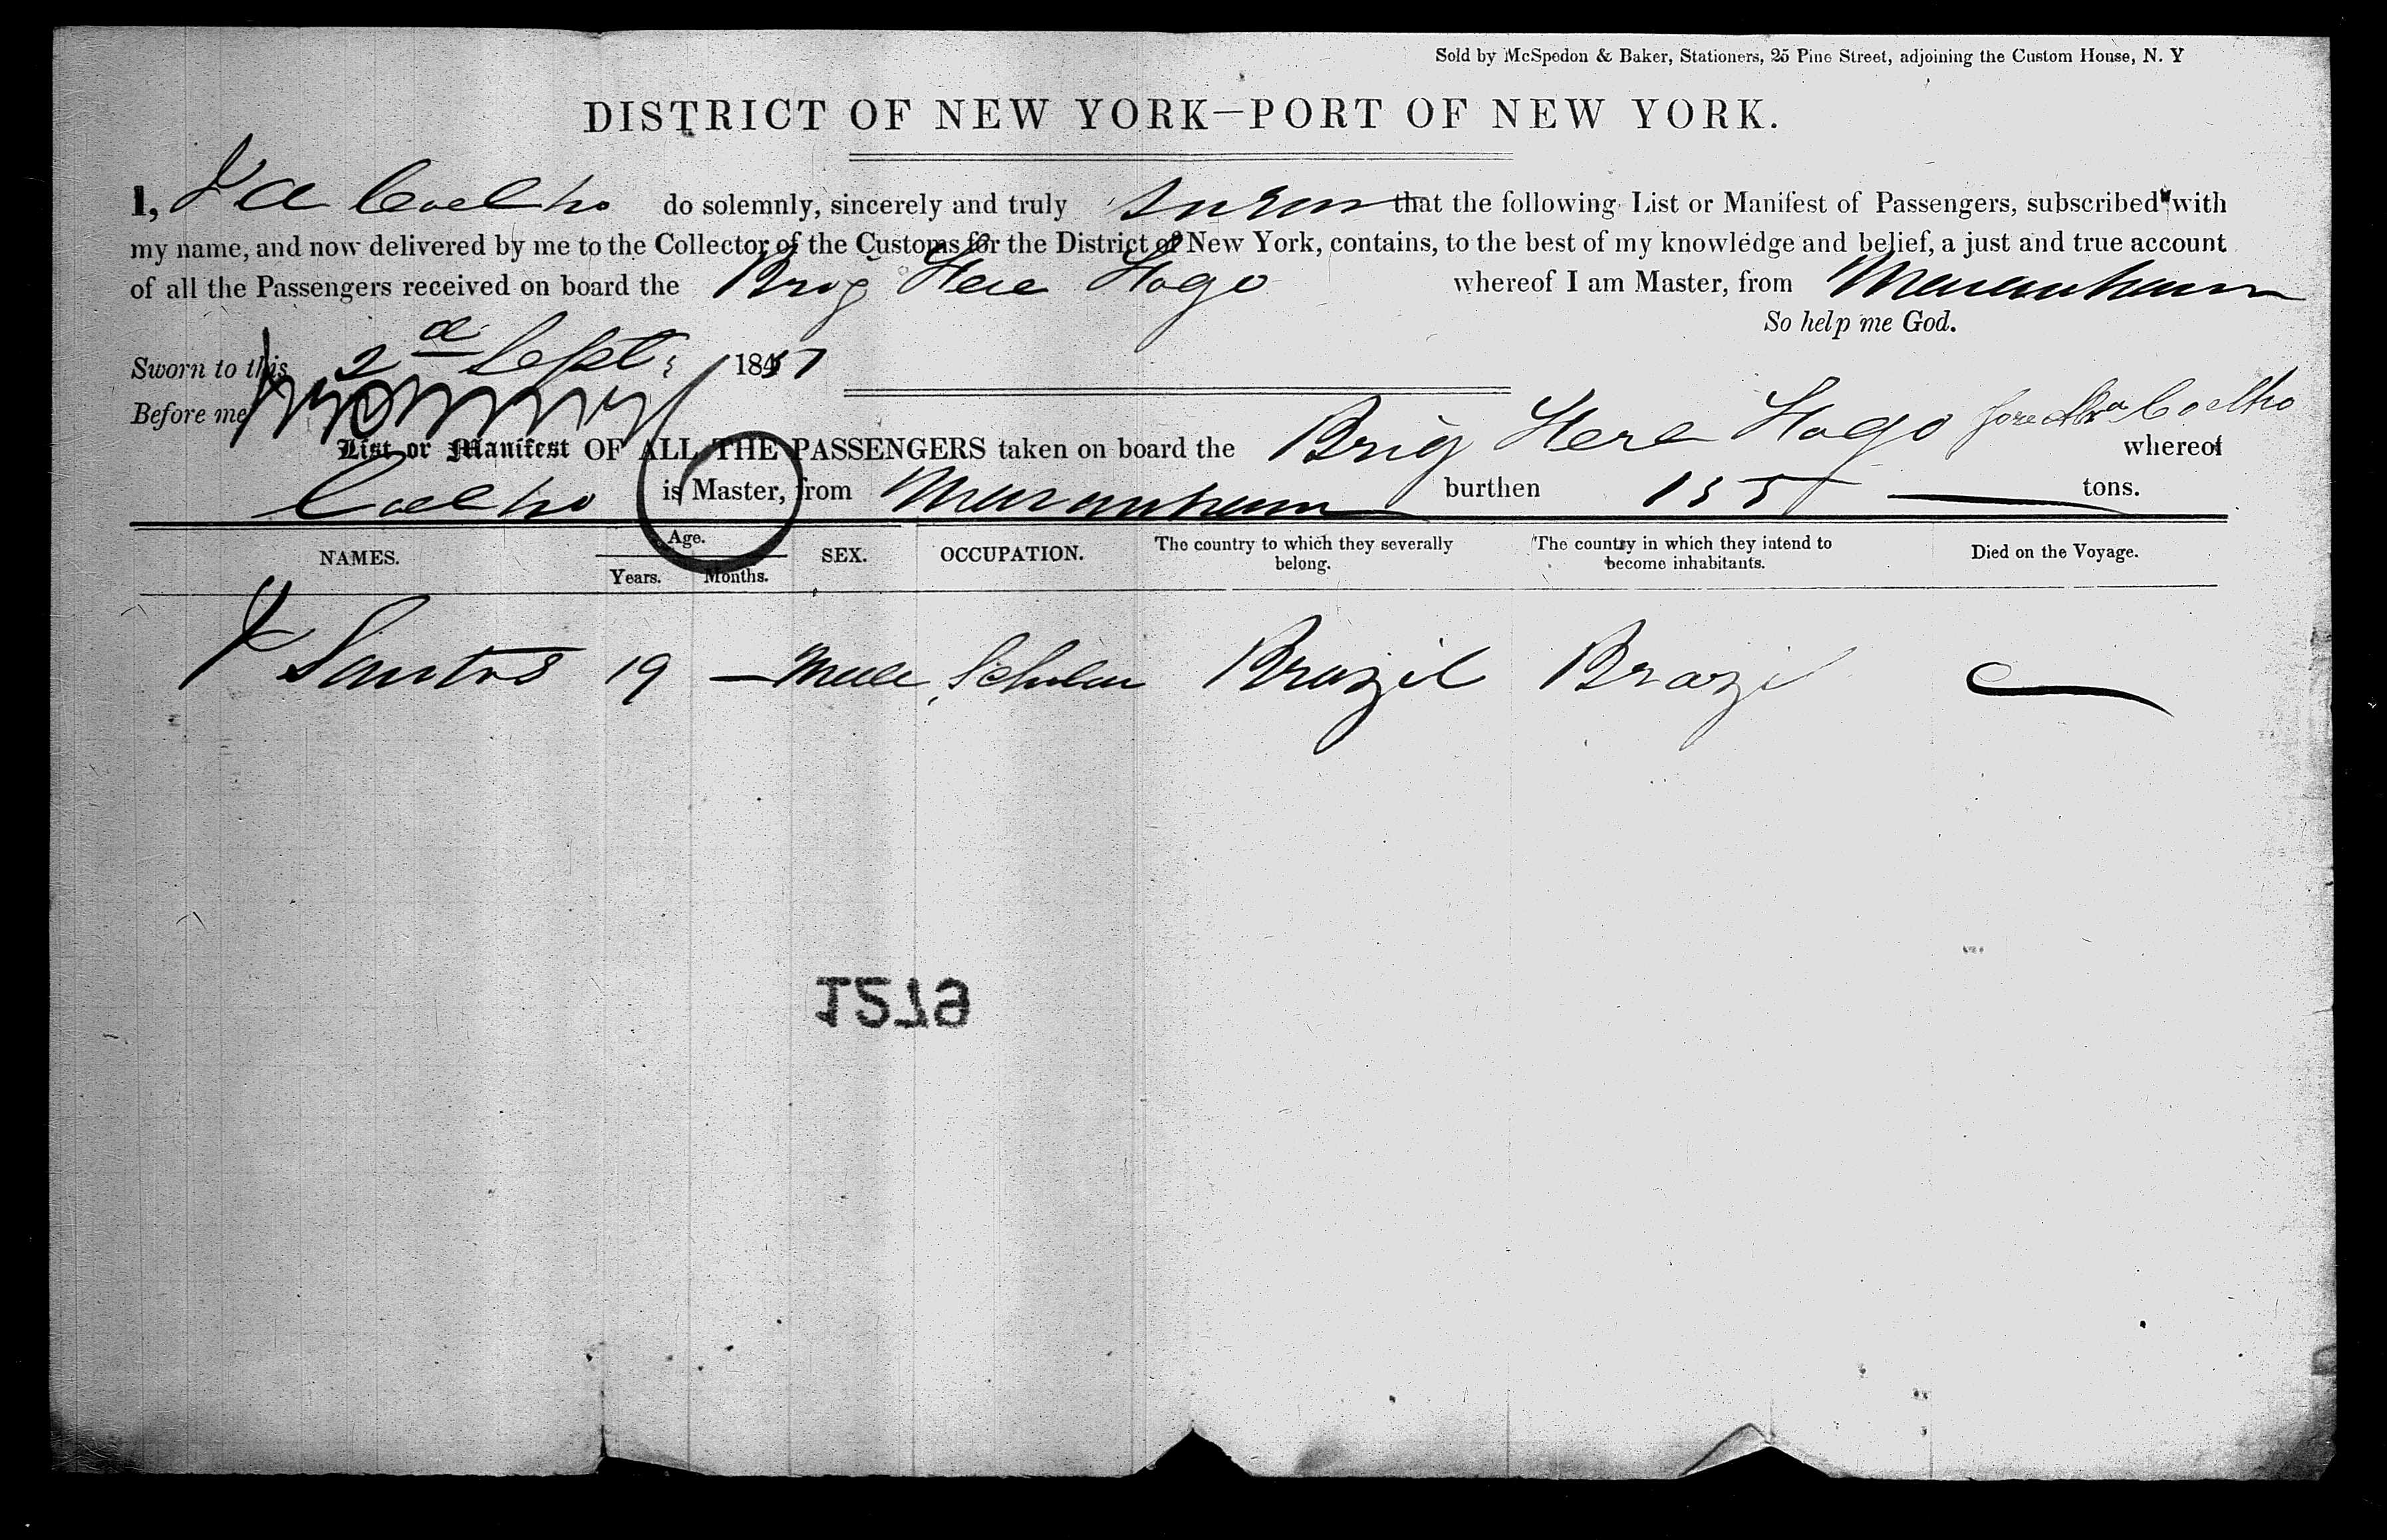 Sold by McSpedon & Baker, Stationers, 25 Pine Street, adjoining the Custom House, N. Y
DISTRICT OF NEW YORK—PORT OF NEW YORK.
I, J A Coelho do solemnly, sincerely and truly swear that the following List or Manifest of Passengers, subscribed with
my name, and now delivered by me to the Collector of the Customs for the District of New York, contains, to the best of my knowledge and belief, a just and true account
of all the Passengers received on board the Brig whereof I am Master, from Maranham
So help me God.
Sworn to this 2d Sept, 1847
Before me
List or Manifest OF ALL THE PASSENGERS taken on board the Brig Coelho whereof
Coelho is Master, from Maranham burthen 155 tons.
NAMES. Age. Years. Months. SEX. OCCUPATION. The country to which they severally belong. The country in which they intend to become inhabitants. Died on the Voyage.
J Santos 19 — Male Scholar Brazil Brazil
1579